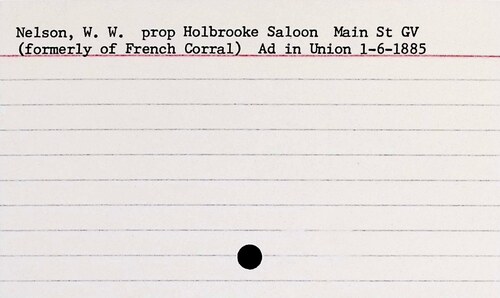 Nelson, W. W.  prop Holbrooke Saloon  Main St GV
(formerly of French Corral)  Ad in Union 1-6-1885